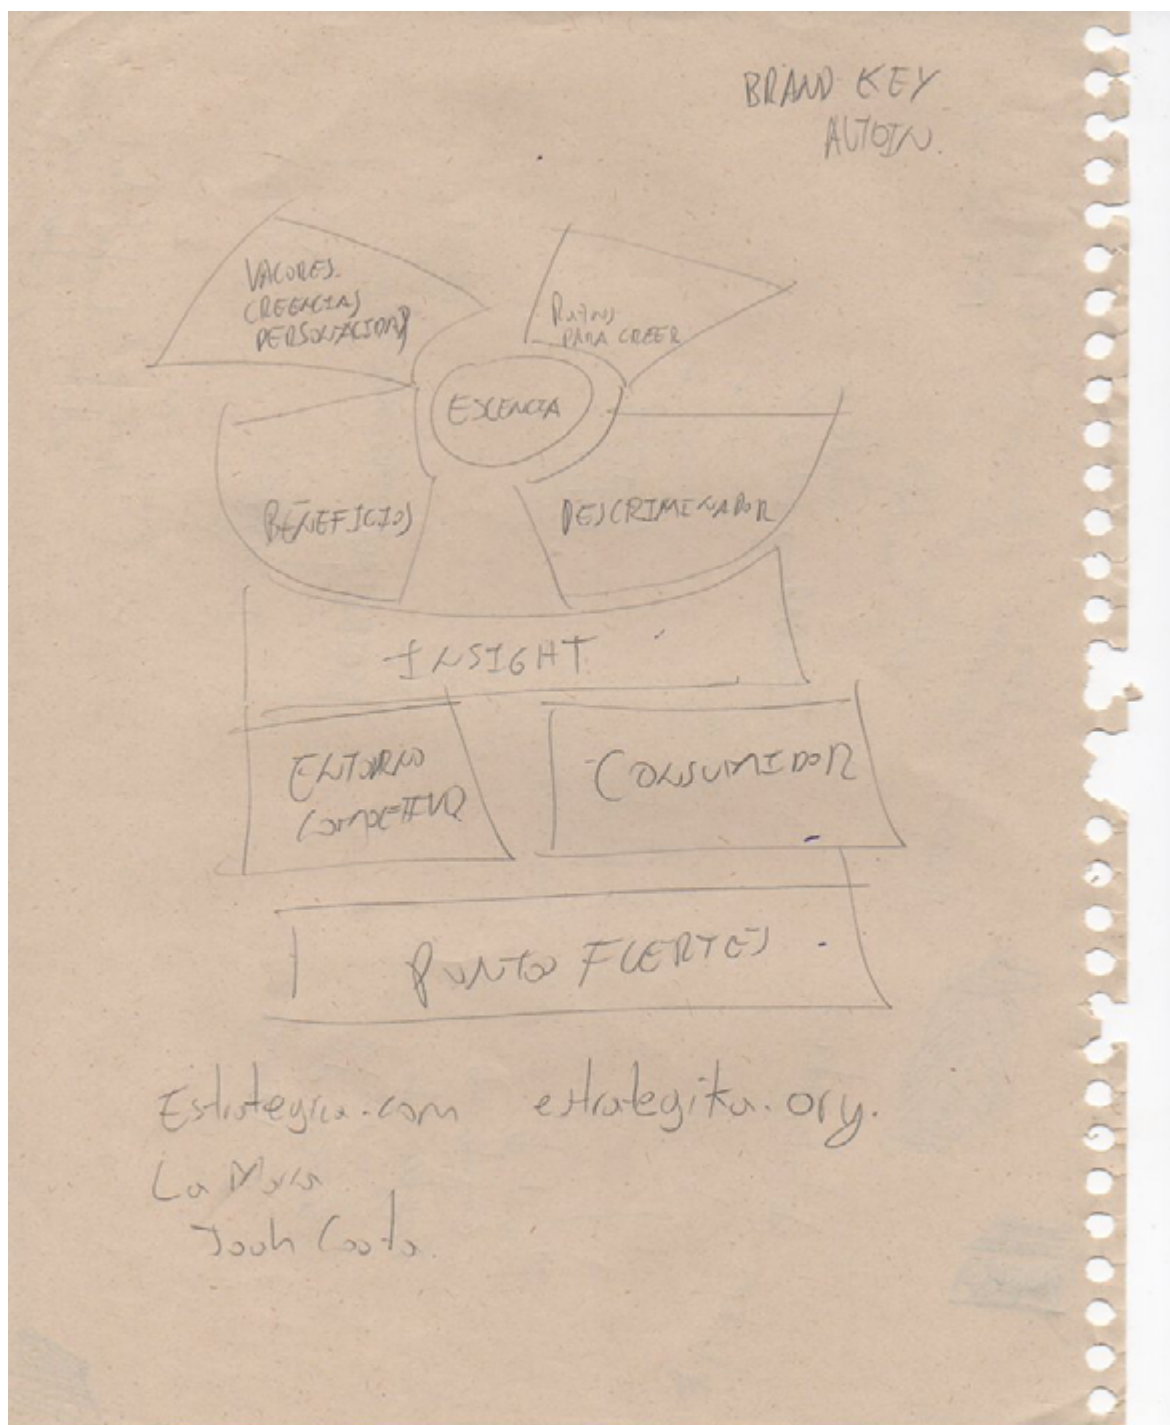 BRAND KEY
AUTOIN.
VALORES
CREENCIAS
PERSONALIDAD
PARA CREER
ESCENCIA
BENEFICIOS
DESCRIMINADOR
INSIGHT
ENTORNO
COMPETITIVO
CONSUMIDOR
PUNTOS FUERTES
Estrategica.com estrategika.org.
La